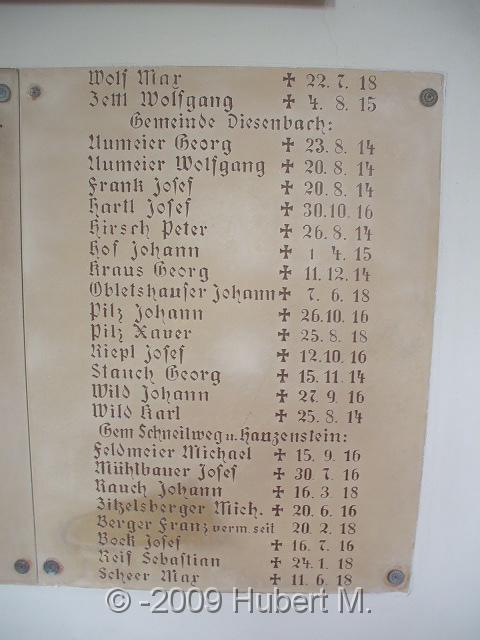 Wolf Max ✠ 22. 7. 18
Zettl Wolfgang ✠ 4. 8. 15
Gemeinde Diesenbach:
Aumeier Georg ✠ 23. 8. 14
Aumeier Wolfgang ✠ 20. 8. 14
Frank Josef ✠ 20. 8. 14
Hartl Josef ✠ 30. 10. 16
Hirsch Peter ✠ 26. 8. 14
Hof Johann ✠ 1 4. 15
Kraus Georg ✠ 11. 12. 14
Obletshauser Johann ✠ 7. 6. 18
Pilz Johann ✠ 26. 10. 16
Pilz Xaver ✠ 25. 8. 18
Riepl Josef ✠ 12. 10. 16
Stauch Georg ✠ 15. 11. 14
Wild Johann ✠ 27. 9. 16
Wild Karl ✠ 25. 8. 14
Gem Schneilweg u. Hauzenstein:
Feldmeier Michael ✠ 15. 9. 16
Mühlbauer Josef ✠ 30. 7. 16
Rauch Johann ✠ 16. 3. 18
Zitzelsberger Mich. ✠ 20. 6. 16
Berger Franz verm. seit 20. 2. 18
Bock Josef ✠ 16. 7. 16
Reif Sebastian ✠ 24. 1. 18
Scheer Max ✠ 11. 6. 18
© -2009 Hubert M.